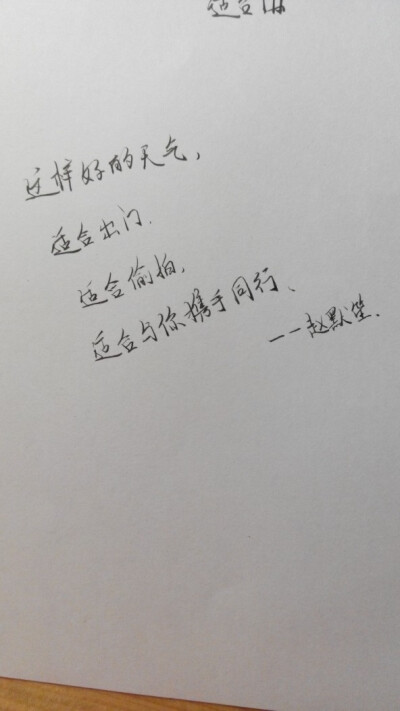 适合
这样好的天气，
适合出门.
适合偷拍，
适合与你携手同行、
——赵默笙.